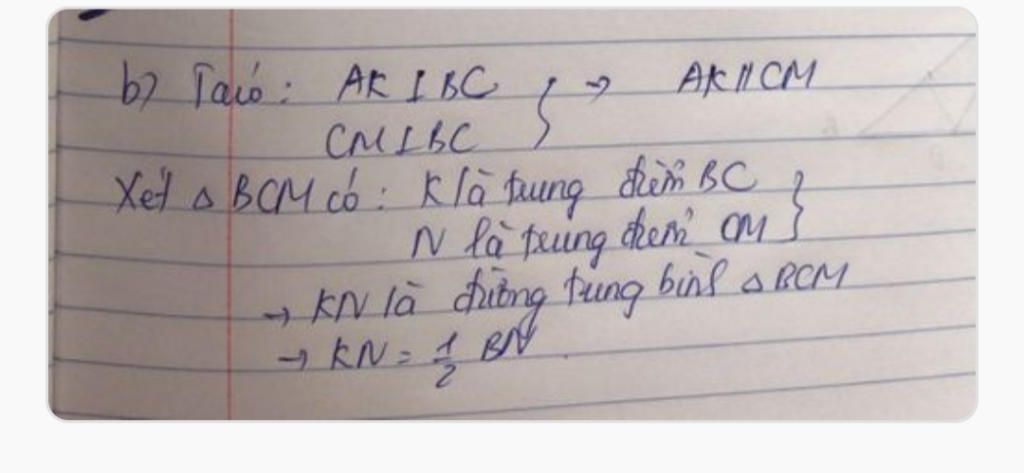 b) Ta có: AK ⊥ BC } → AK // CM
CM ⊥ BC
Xét △ BCM có: K là trung điểm BC }
N là trung điểm CM
→ KN là đường trung bình △ BCM
→ KN = 1/2 BN